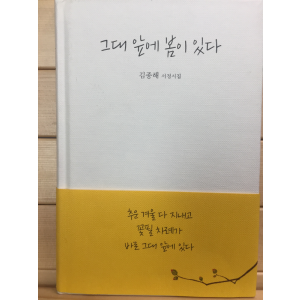 그대 앞에 봄이 있다
김종해 서정시집
추운 겨울 다 지내고
꽃필 차례가
바로 그대 앞에 있다